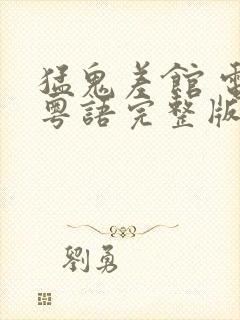 猛鬼差館 電
粵語完整版
劉勇